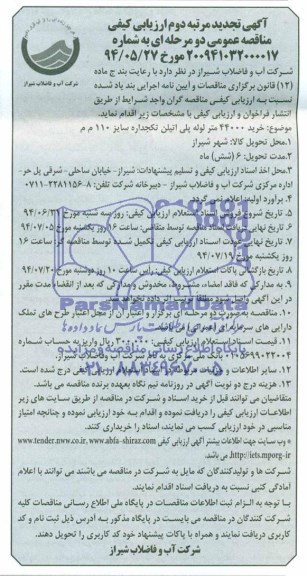 آگهی تجدید مرتبه دوم ارزیابی کیفی
مناقصه عمومی دو مرحله ای به شماره
۲۰۰۹۴۱۰۳۲۰۰۰۰۱۷ مورخ ۹۴/۰۵/۲۷
شرکت آب و فاضلاب شیراز
شرکت آب و فاضلاب شیراز در نظر دارد با رعایت بند ج ماده
(۱۲) قانون برگزاری مناقصات و آیین نامه اجرایی بند یاد شده
نسبت به ارزیابی کیفی مناقصه گران واجد شرایط از طریق
انتشار فراخوان و ارزیابی کیفی با مشخصات زیر اقدام نماید.
موضوع: خرید ۴۴۰۰۰ متر لوله پلی اتیلن تکجداره سایز ۱۱۰ م م
۱. محل تحویل کالا: شهر شیراز
۲. مدت تحویل: ۶ (شش) ماه
۳. محل اخذ اسناد ارزیابی کیفی و تسلیم پیشنهادات: شیراز- خیابان ساحلی- شرقی پل حر-
اداره مرکزی شرکت آب و فاضلاب شیراز - دبیرخانه شرکت تلفن: ۸-۲۲۸۱۱۵۶-۰۷۱۱
۴. برآورد اولیه: اعلام می گردد.
۵. تاریخ شروع فروش اسناد استعلام ارزیابی کیفی: روز سه شنبه مورخ ۹۴/۰۶/۳۱
۶. تاریخ نهایی دریافت اسناد مناقصه توسط متقاضی: ساعت ۱۶ روز یکشنبه مورخ ۹۴/۰۷/۰۵
۷. تاریخ نهایی عودت اسناد ارزیابی کیفی تکمیل شده توسط مناقصه گر: ساعت ۱۶
روز یکشنبه مورخ ۹۴/۰۷/۱۹
۸. تاریخ بازگشایی پاکات استعلام ارزیابی کیفی: راس ساعت ۱۰ روز دوشنبه مورخ ۹۴/۰۷/۲۰
۹. به مدارکی که فاقد امضاء، مشروط، مخدوش و مدارکی که بعد از انقضاء مدت مقرر
در این آگهی واصل شود مطلقا ترتیب اثر داده نخواهد شد.
۱۰. مناقصه به صورت دو مرحله ای برگزار و اعتبار آن از محل اعتبار طرح های تملک
دارایی های سرمایه ای
۱۱. قیمت اسناد استعلام ارزیابی کیفی: ۳۰۰،۰۰۰ ریال واریز به حساب شماره
۰۱۰۵۶۹۹۰۲۲۰۰۴ بانک ملی مرکزی به نام شرکت آب و فاضلاب شیراز.
۱۲. سایر اطلاعات و جزئیات در اسناد استعلام ارزیابی کیفی درج شده است.
۱۳. هزینه درج دو نوبت آگهی در روزنامه نیم نگاه بعهده برنده مناقصه می باشد.
متقاضیان می توانند قبل از خرید اسناد و شرکت در مناقصه از طریق سایت های زیر
اطلاعات ارزیابی کیفی را دریافت نموده و اقدام به خود ارزیابی نموده و چنانچه امتیاز
مناسبی در خود ارزیابی کسب می نمایند، اسناد را خریداری کنند.
* وب سایت جهت اطلاعات بیشتر آگهی ارزیابی کیفی www.tender.nww.co.ir, www.abfa-shiraz.com
http://iets.mporg.ir می باشد.
شرکت ها و تولیدکنندگان که مایل به شرکت در مناقصه می باشند می توانند با اعلام
آمادگی کتبی نسبت به دریافت اسناد اقدام نمایند.
با توجه به الزام ثبت اطلاعات مناقصات در پایگاه ملی اطلاع رسانی مناقصات کلیه
شرکت کنندگان در مناقصه می بایست در پایگاه مذکور به آدرس ذیل ثبت نام و کد
کاربری دریافت نمایند و همراه با پاکات پیشنهاد خود کد کاربری را تحویل دهند.
شرکت آب و فاضلاب شیراز
ParsNamadData
پایگاه اطلاع رسانی مناقصه و مزایده
۰۲۱-۸۸۳۴۹۶۷۰-۵